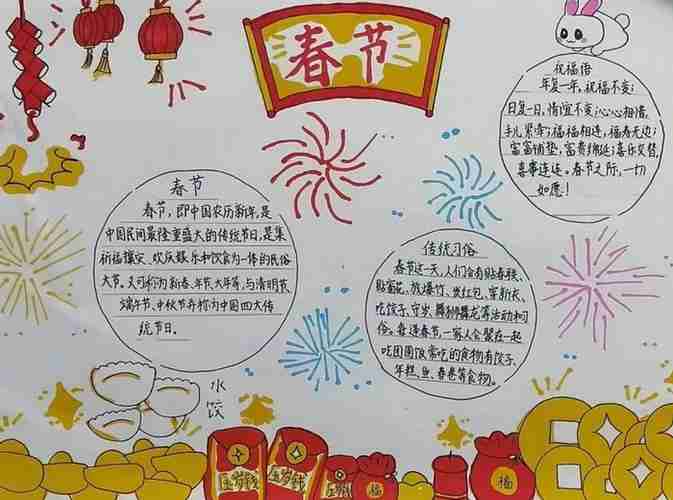 春节
祝福语
年复一年，祝福不变；
日复一日，情谊不变；心心相惜，
手儿紧牵；福福相连，福寿无边；
富富铺垫，富贵绵延；喜乐交替，
喜事连连。春节之际，一切
如愿！
春节
春节，即中国农历新年，是
中国民间最隆重盛大的传统节日，是集
祈福攘灾、欢庆娱乐和饮食为一体的民俗
大节。又可称为新春、年节、大年等，与清明节、
端午节、中秋节并称为中国四大传
统节日。
传统习俗
春节这一天，人们会有贴春联、
贴窗花、放爆竹、发红包、穿新衣、
吃饺子、守岁、舞狮舞龙等活动和习
俗。每逢春节，一家人会聚在一起
吃团圆饭，常吃的食物有饺子、
年糕、鱼、春卷等食物。
水
饺
压岁钱
压岁钱
福
福